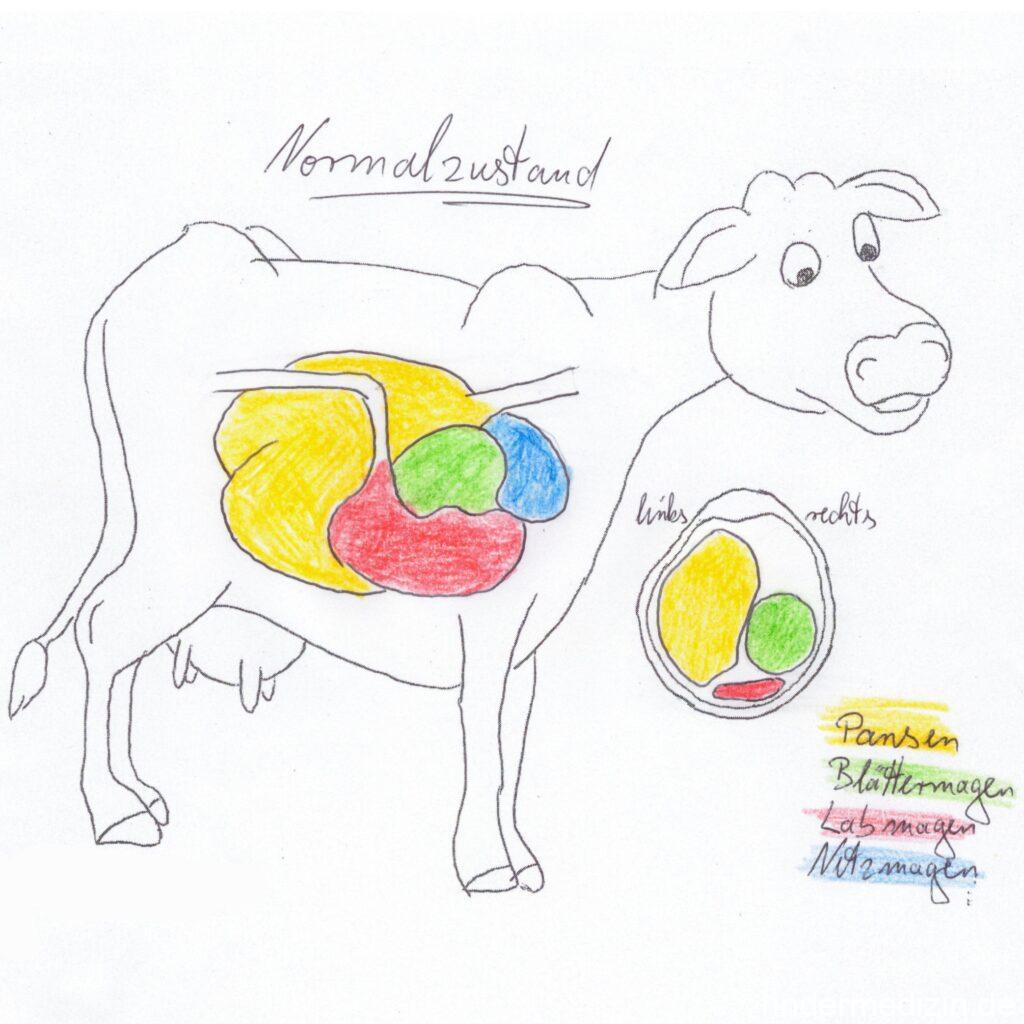 Normalzustand
links rechts
Pansen
Blättermagen
Labmagen
Netzmagen